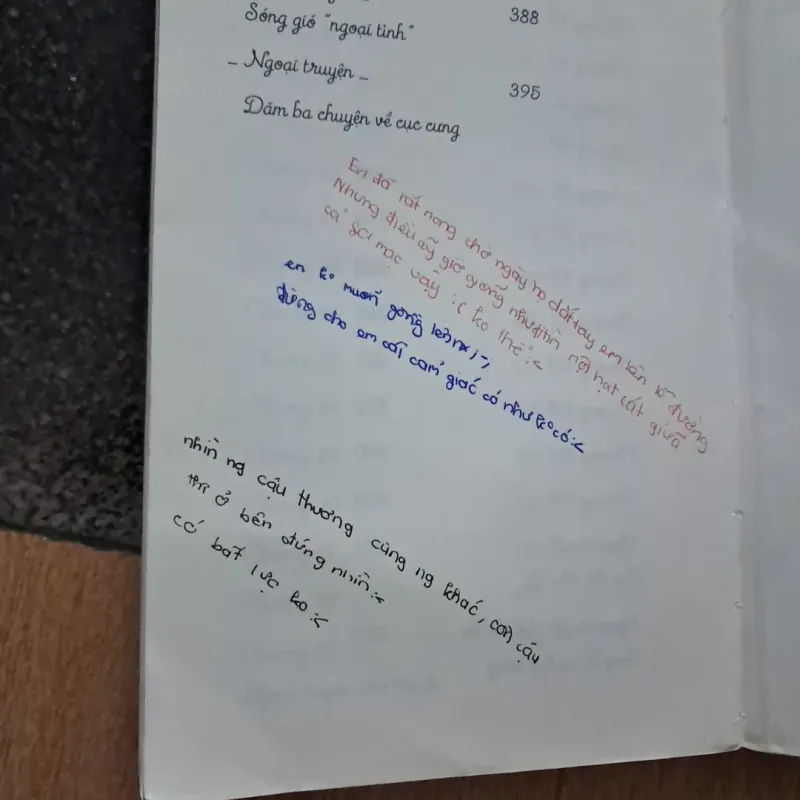 388
Sóng gió "ngoại tình"
- Ngoại truyện -
395
Dăm ba chuyện về cục cưng
Em đã rất mong chờ ngày họ dắt tay em lên lễ đường
Nhưng điều ấy giờ giống như nhìn một hạt cát giữa
cả sa mạc vậy :( ko thể :<
en ko muốn gồng lên nx ;-;
đừng cho em cái cảm giác có như ko có :<
nhìn ng cậu thương cùng ng khác, còn cậu
thì ở bên đứng nhìn :<
có bất lực ko :<